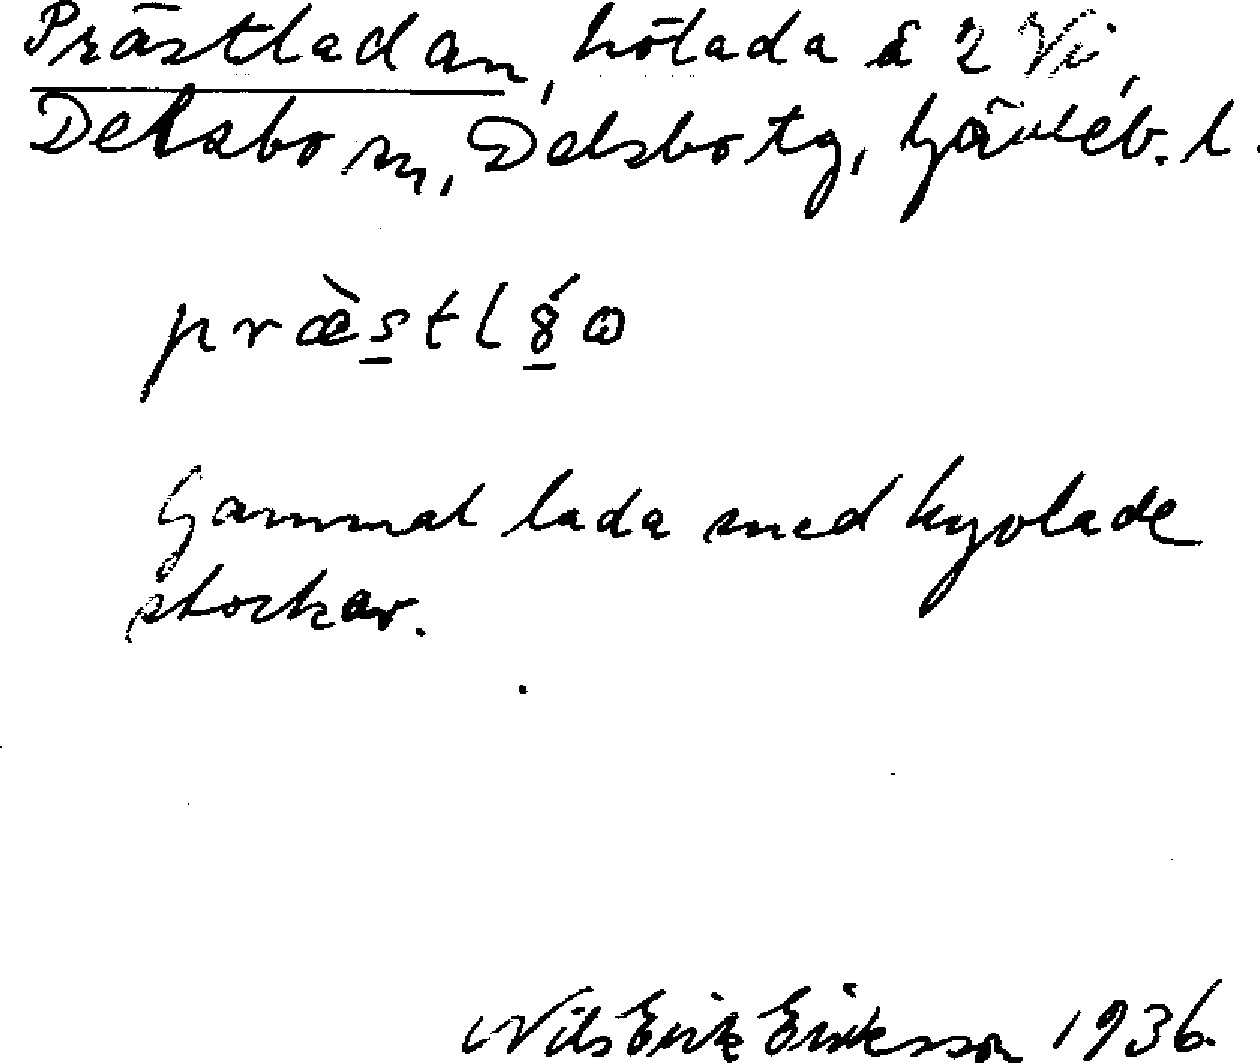 Prästladan, hölada å 2 Vi,
Delsbo sn, Delsbo tg, Gävleb. l.
præ̀stl8́ɷ
Gammal lada med kyolade
stockar.
Nils Erik Eriksson 1936.